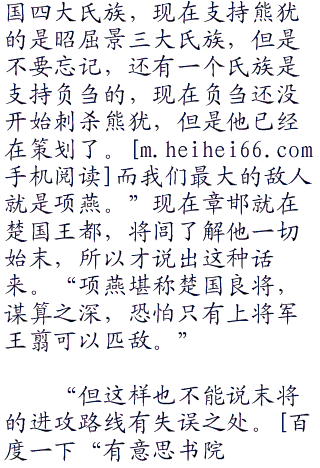 国四大氏族，现在支持熊犹
的是昭屈景三大氏族，但是
不要忘记，还有一个氏族是
支持负刍的，现在负刍还没
开始刺杀熊犹，但是他已经
在策划了。[m.heihei66.com
手机阅读]而我们最大的敌人
就是项燕。”现在章邯就在
楚国王都，将闾了解他一切
始末，所以才说出这种话
来。“项燕堪称楚国良将，
谋算之深，恐怕只有上将军
王翦可以匹敌。”
“但这样也不能说末将
的进攻路线有失误之处。[百
度一下“有意思书院